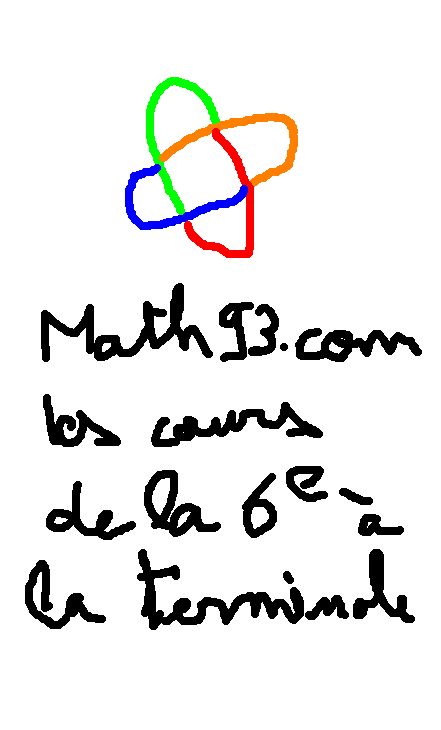 Math93.com
les cours
de la 6e à
la terminale